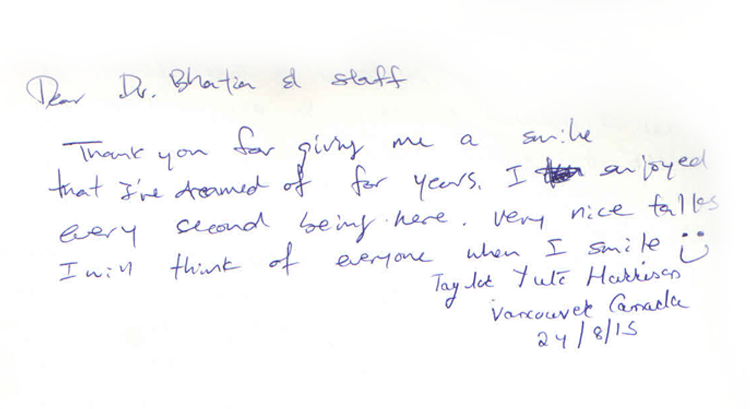 Dear Dr. Bhatia & staff
Thank you for giving me a smile
that I've dreamed of for years. I enjoyed
every second being here. Very nice folks
I will think of everyone when I smile
Taylor Harrison
Vancouver Canada
24/8/15